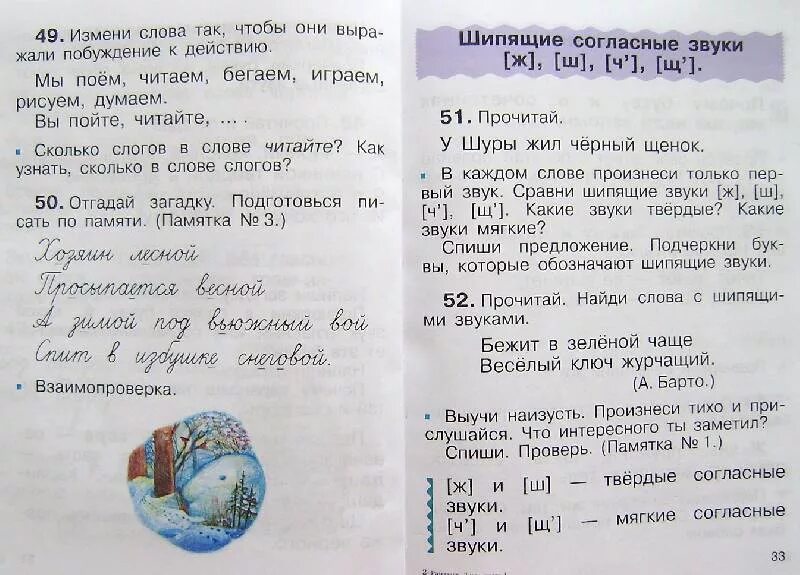 49. Измени слова так, чтобы они выра-
жали побуждение к действию.
Мы поём, читаем, бегаем, играем,
рисуем, думаем.
Вы пойте, читайте, ... .
Сколько слогов в слове читайте? Как
узнать, сколько в слове слогов?
50. Отгадай загадку. Подготовься пи-
сать по памяти. (Памятка № 3.)
Хозяин лесной
Просыпается весной
А зимой под вьюжный вой
Спит в избушке снеговой.
Взаимопроверка.
Шипящие согласные звуки
[ж], [ш], [ч’], [щ’].
51. Прочитай.
У Шуры жил чёрный щенок.
В каждом слове произнеси только пер-
вый звук. Сравни шипящие звуки [ж], [ш],
[ч’], [щ’]. Какие звуки твёрдые? Какие
звуки мягкие?
Спиши предложение. Подчеркни бук-
вы, которые обозначают шипящие звуки.
52. Прочитай. Найди слова с шипящи-
ми звуками.
Бежит в зелёной чаще
Весёлый ключ журчащий.
(А. Барто.)
Выучи наизусть. Произнеси тихо и при-
слушайся. Что интересного ты заметил?
Спиши. Проверь. (Памятка № 1.)
[ж] и [ш] — твёрдые согласные
звуки.
[ч’] и [щ’] — мягкие согласные
звуки.
33